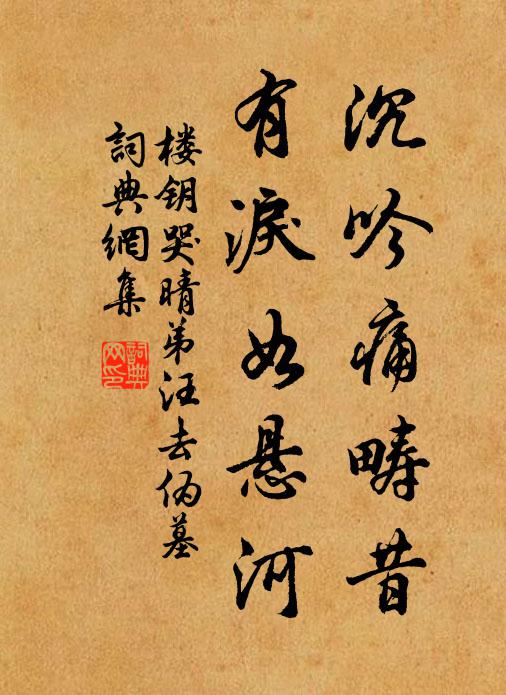 沉吟痛畴昔
有淚如悬河
楼钥哭晴弟汪去伪墓
詞典網集
詞典網印